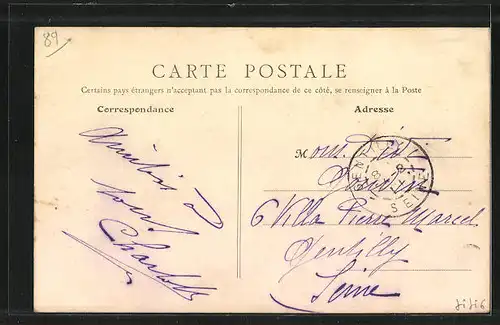 89
CARTE POSTALE
Certains pays étrangers n'acceptant pas la correspondance de ce côté, se renseigner à la Poste
Correspondance
Adresse
Amitiés à
tous
Charlotte
Mons.
6 Villa Pierre Marcel
Gentilly
Seine